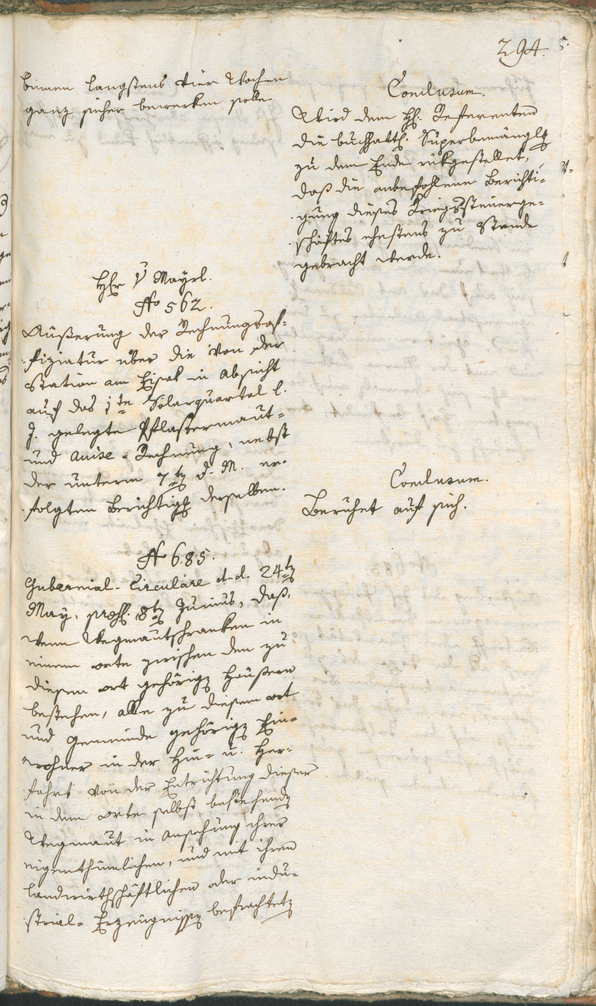 294.
binnen längstens vier Wochen
ganz sicher bewirken solle.
Conclusum.
Wird dem H. Referenten
die buchhalth. Superbemänglg
zu dem Ende rükgestellet,
daß die anbefohlene Berichti-
gung dieses Kriegssteuerge-
schäftes ehestens zu Stande
gebracht werde.
Hr v Mayrl.
No 562.
Äußerung der Rechnungsof-
fiziatur über die von der
Station am Eisak in Absicht
auf das 1te Solarquartal l.
J. gelegte Pflastermaut-
und Rechnung, nebst
der unterm 7ten d. M. er-
folgten Berichtigg derselben.
Conclusum.
Beruhet auf sich.
No 685.
Gubernial-Circulare d. d. 24ten
May, präs. 8ten Junius, daß,
wenn Wegmautschranken in
einem Orte zwischen den zu
diesem Ort gehörigen Häusern
bestehen, alle zu diesem Ort
und Gemeinde gehörigen Ein-
wohner in der Hin- u. Her-
fahrt von der Entrichtung dieser
in dem Orte selbst bestehenden
Wegmaut in Ansehung ihrer
eigenthümlichen, und mit ihren
landwirthschäftlichen oder indu-
strial-Erzeugnissen befrachteten